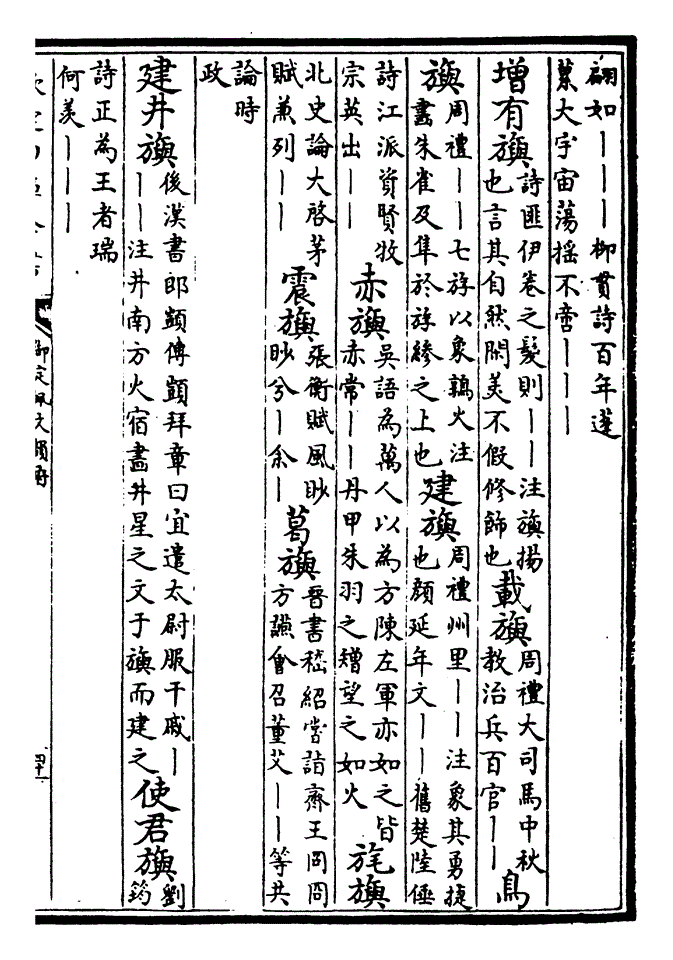 翩如｜｜｜柳貫詩百年蓬
藁大宇宙蕩揺不啻｜｜｜
增有旟
詩匪伊卷之髮則｜｜注旟揚
也言其自然閑美不假修飾也
載旟
周禮大司馬中秋
教治兵百官｜｜
鳥
旟
周禮｜｜七斿以象鶉火注
畫朱雀及隼於斿縿之上也
建旟
周禮州里｜｜注象其勇捷
也顔延年文｜｜舊楚陸倕
詩江派資賢牧
宗英出｜｜
赤旟
吳語為萬人以為方陳左軍亦如之皆
赤常｜｜丹甲朱羽之矰望之如火
旄旟
北史論大啓茅
賦兼列｜｜
震旟
張衡賦風眇
眇兮｜余｜
葛旟
晉書嵇紹嘗詣齊王冏冏
方讌會召董艾｜｜等共
論時
政
建井旟
後漢書郎顗傳顗拜章曰宜遣太尉服干戚｜
｜｜注井南方火宿畫井星之文于旟而建之
使君旟
劉
筠
詩正為王者瑞
何羨｜｜｜
御定佩文韻府